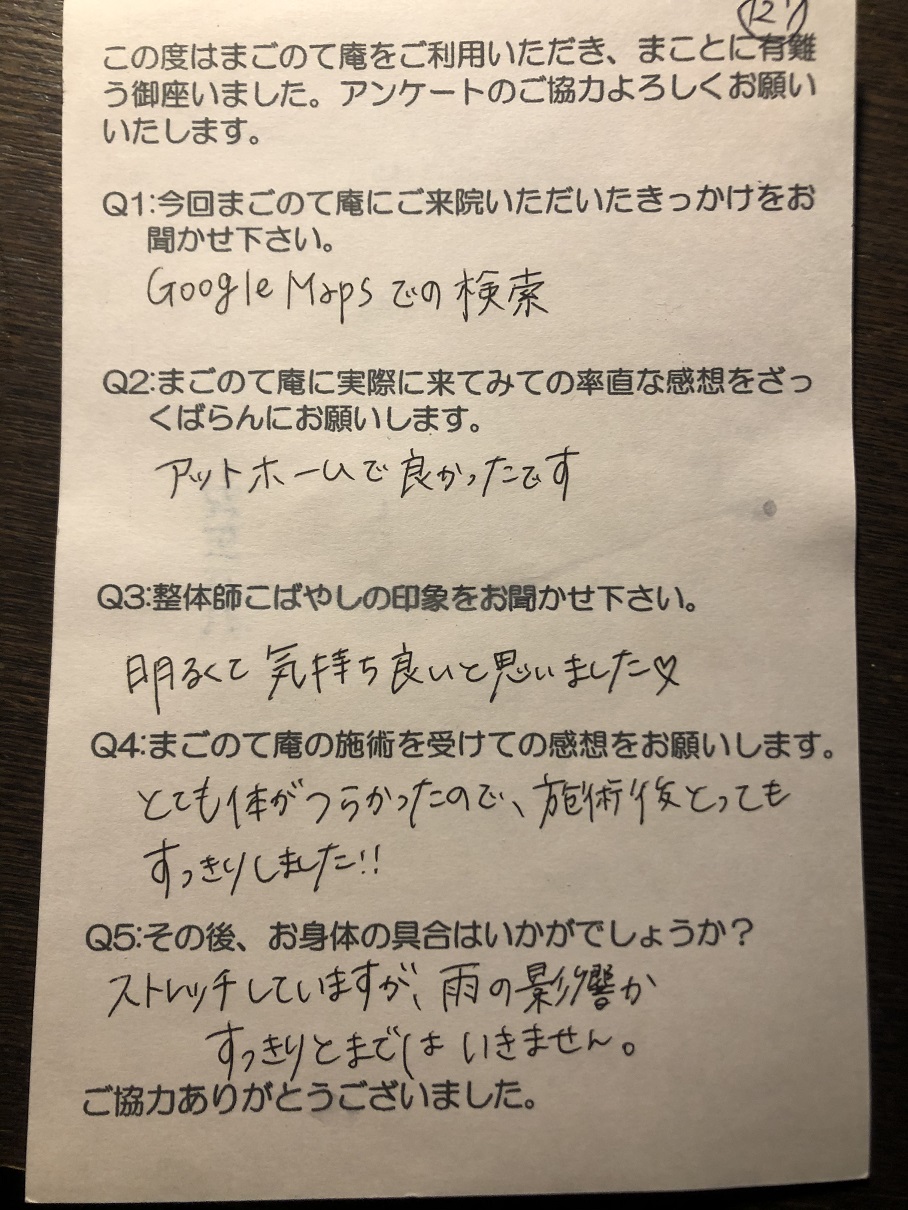 127
この度はまごのて庵をご利用いただき、まことに有難
う御座いました。アンケートのご協力よろしくお願い
いたします。
Q1:今回まごのて庵にご来院いただいたきっかけをお
聞かせ下さい。
Google Mapsでの検索
Q2:まごのて庵に実際に来てみての率直な感想をざっ
くばらんにお願いします。
アットホームで良かったです
Q3:整体師こばやしの印象をお聞かせ下さい。
明るくて気持ち良いと思いました♡
Q4:まごのて庵の施術を受けての感想をお願いします。
とても体がつらかったので、施術後とっても
すっきりしました!!
Q5:その後、お身体の具合はいかがでしょうか？
ストレッチしていますが、雨の影響か
すっきりとまではいきません。
ご協力ありがとうございました。